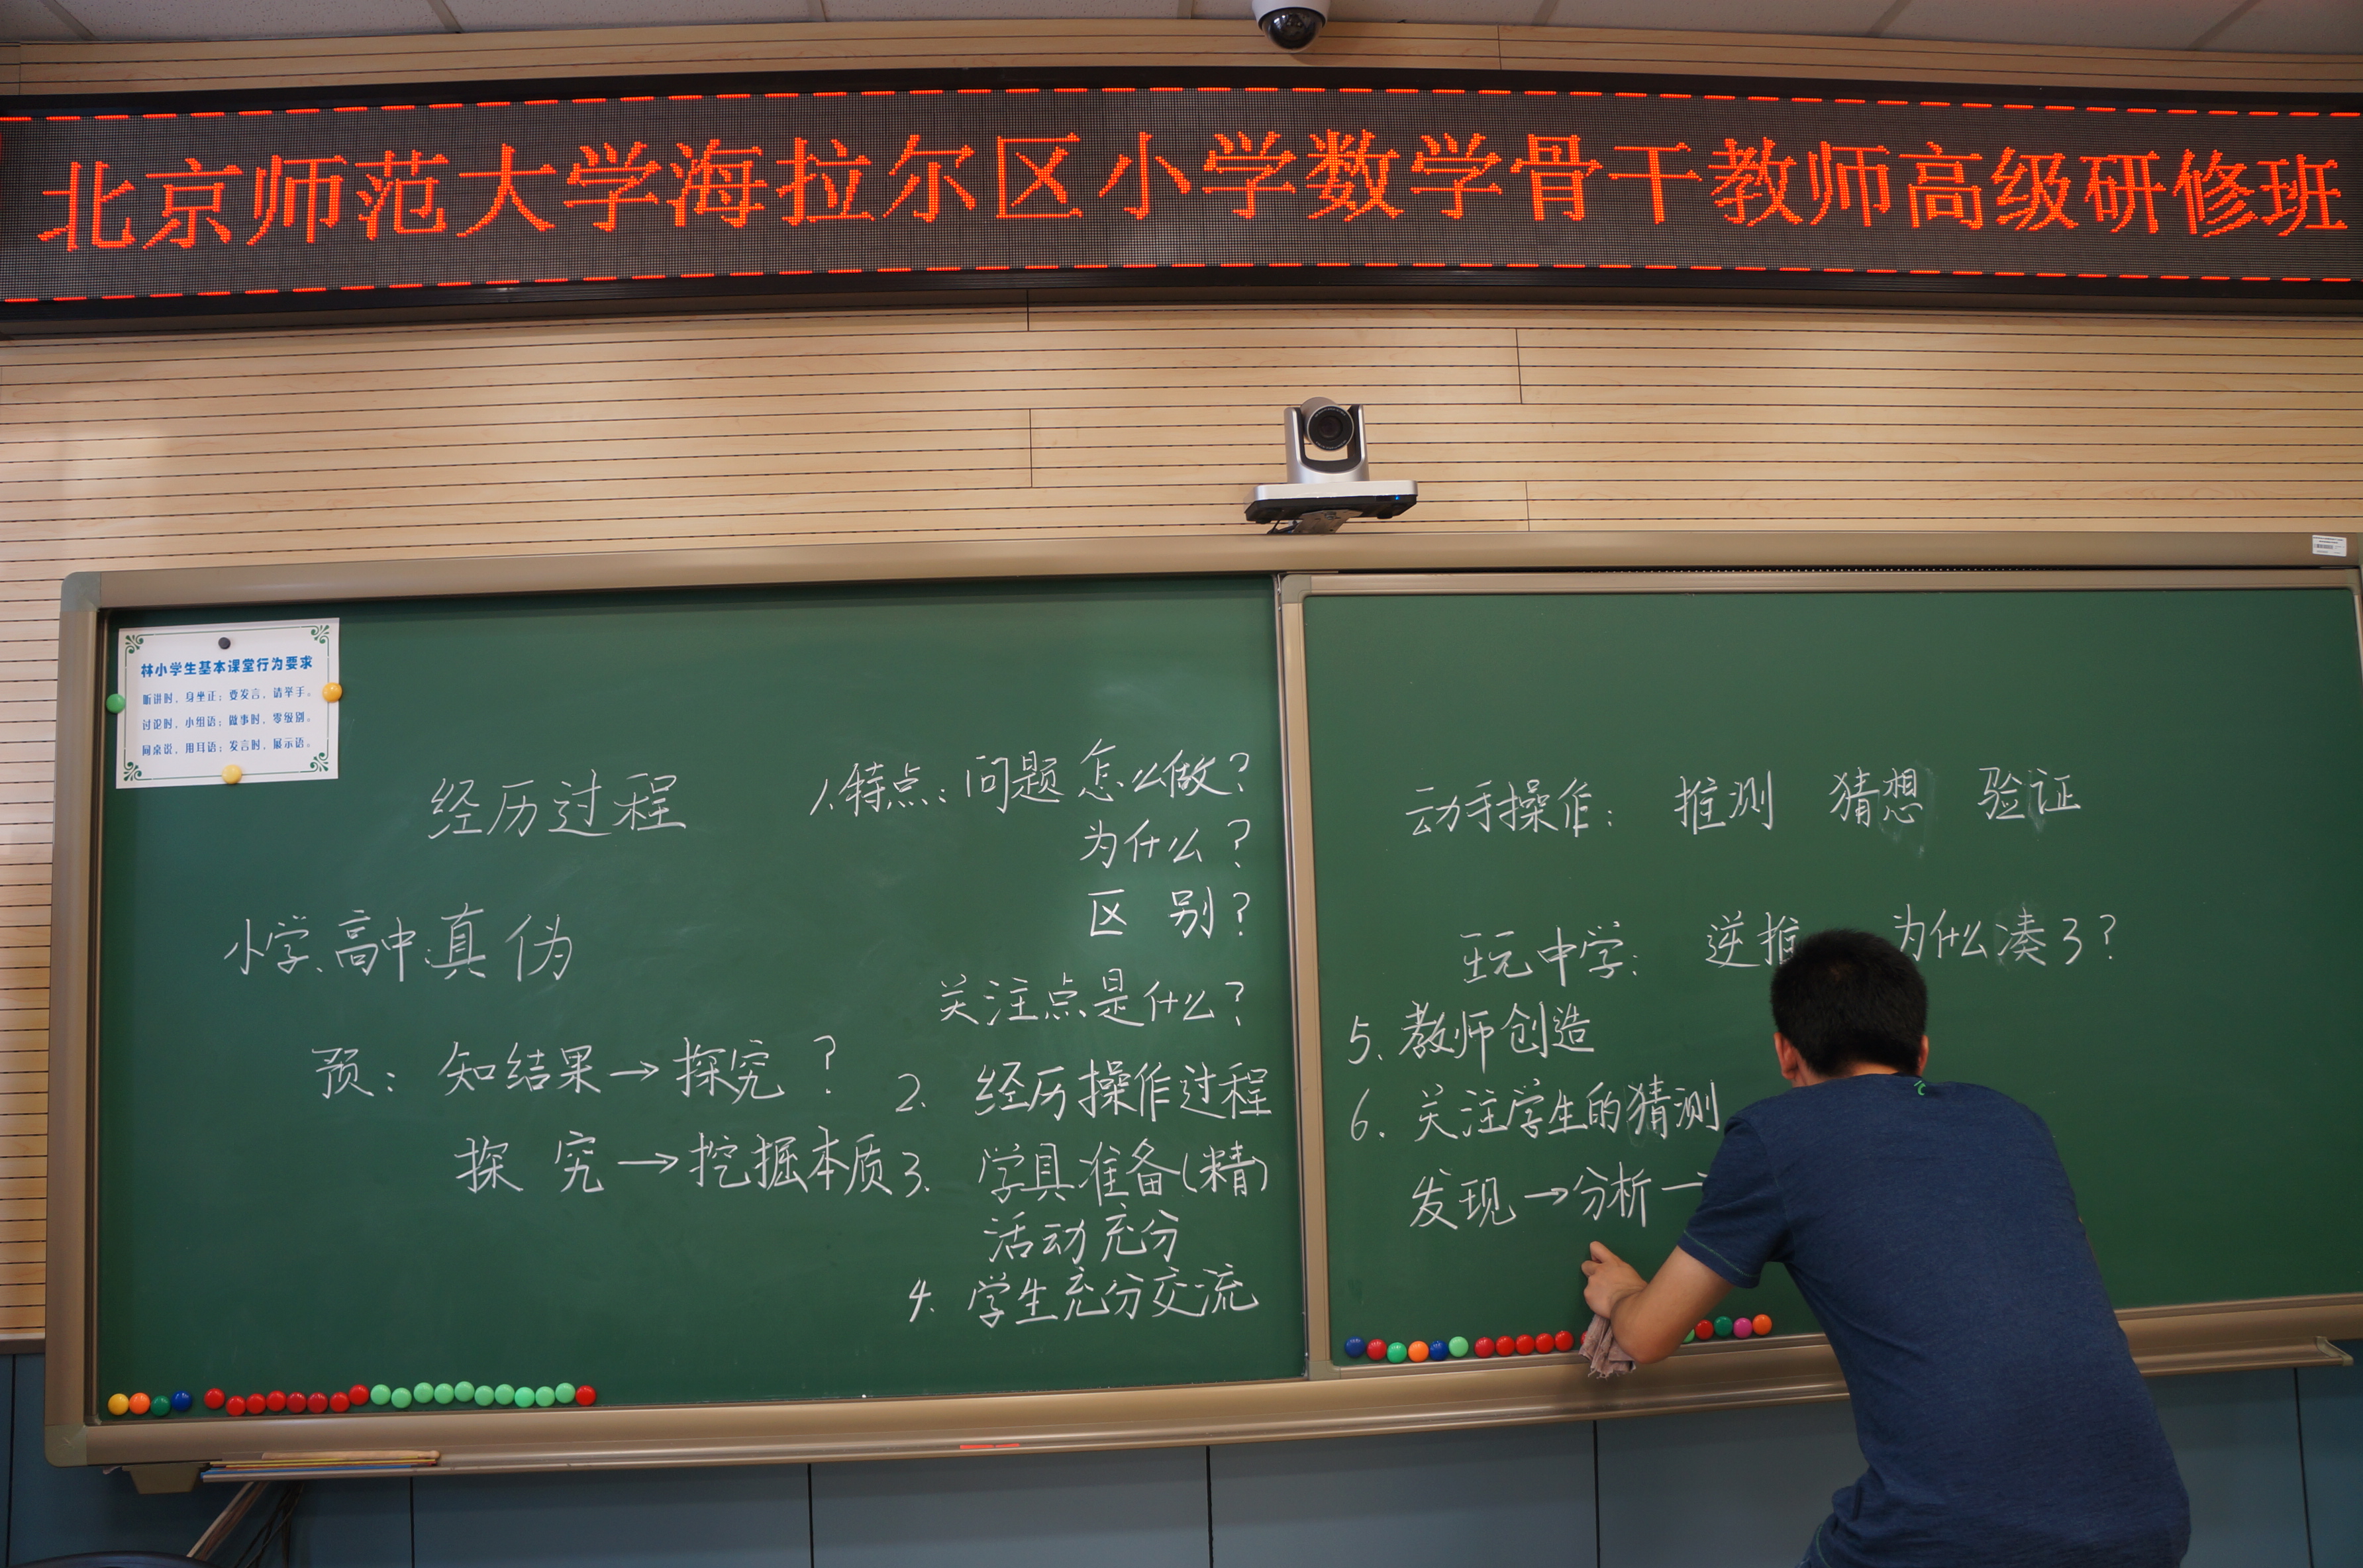 北京师范大学海拉尔区小学数学骨干教师高级研修班
林小学生基本课堂行为要求
听讲时，身坐正；要发言，请举手。
讨论时，小组语；做事时，零级别。
同桌说，用耳语；发言时，展示语。
经历过程
小学、高中：真伪
预：知结果→探究？
探究→挖掘本质
1.特点：问题 怎么做？
为什么？
区别？
关注点是什么？
2. 经历操作过程
3. 学具准备(精)
活动充分
4. 学生充分交流
动手操作： 推测 猜想 验证
玩中学： 逆推 为什么凑3？
5. 教师创造
6. 关注学生的猜测
发现→分析→